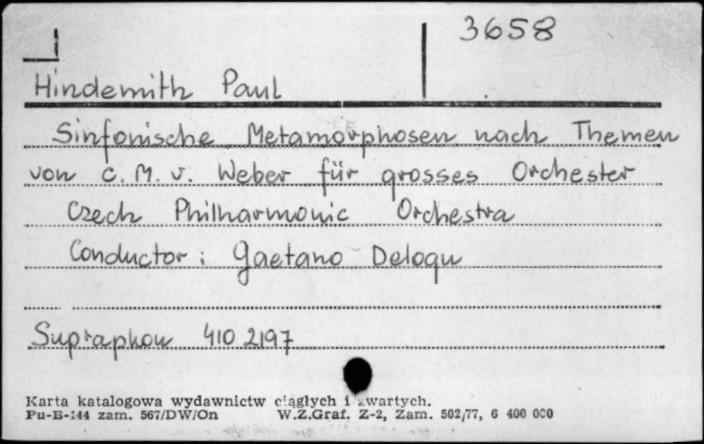 3658
Hindemith Paul
Sinfonische Metamorphosen nach Themen
von C. M. v. Weber für grosses Orchester
Czech Philharmonic Orchestra
Conductor: Gaetano Delogu
Supraphon 410 2197
Karta katalogowa wydawnictw ciągłych i zwartych.
Pu-B-144 zam. 567/DW/On W.Z.Graf. Z-2, Zam. 502/77, 6 400 000